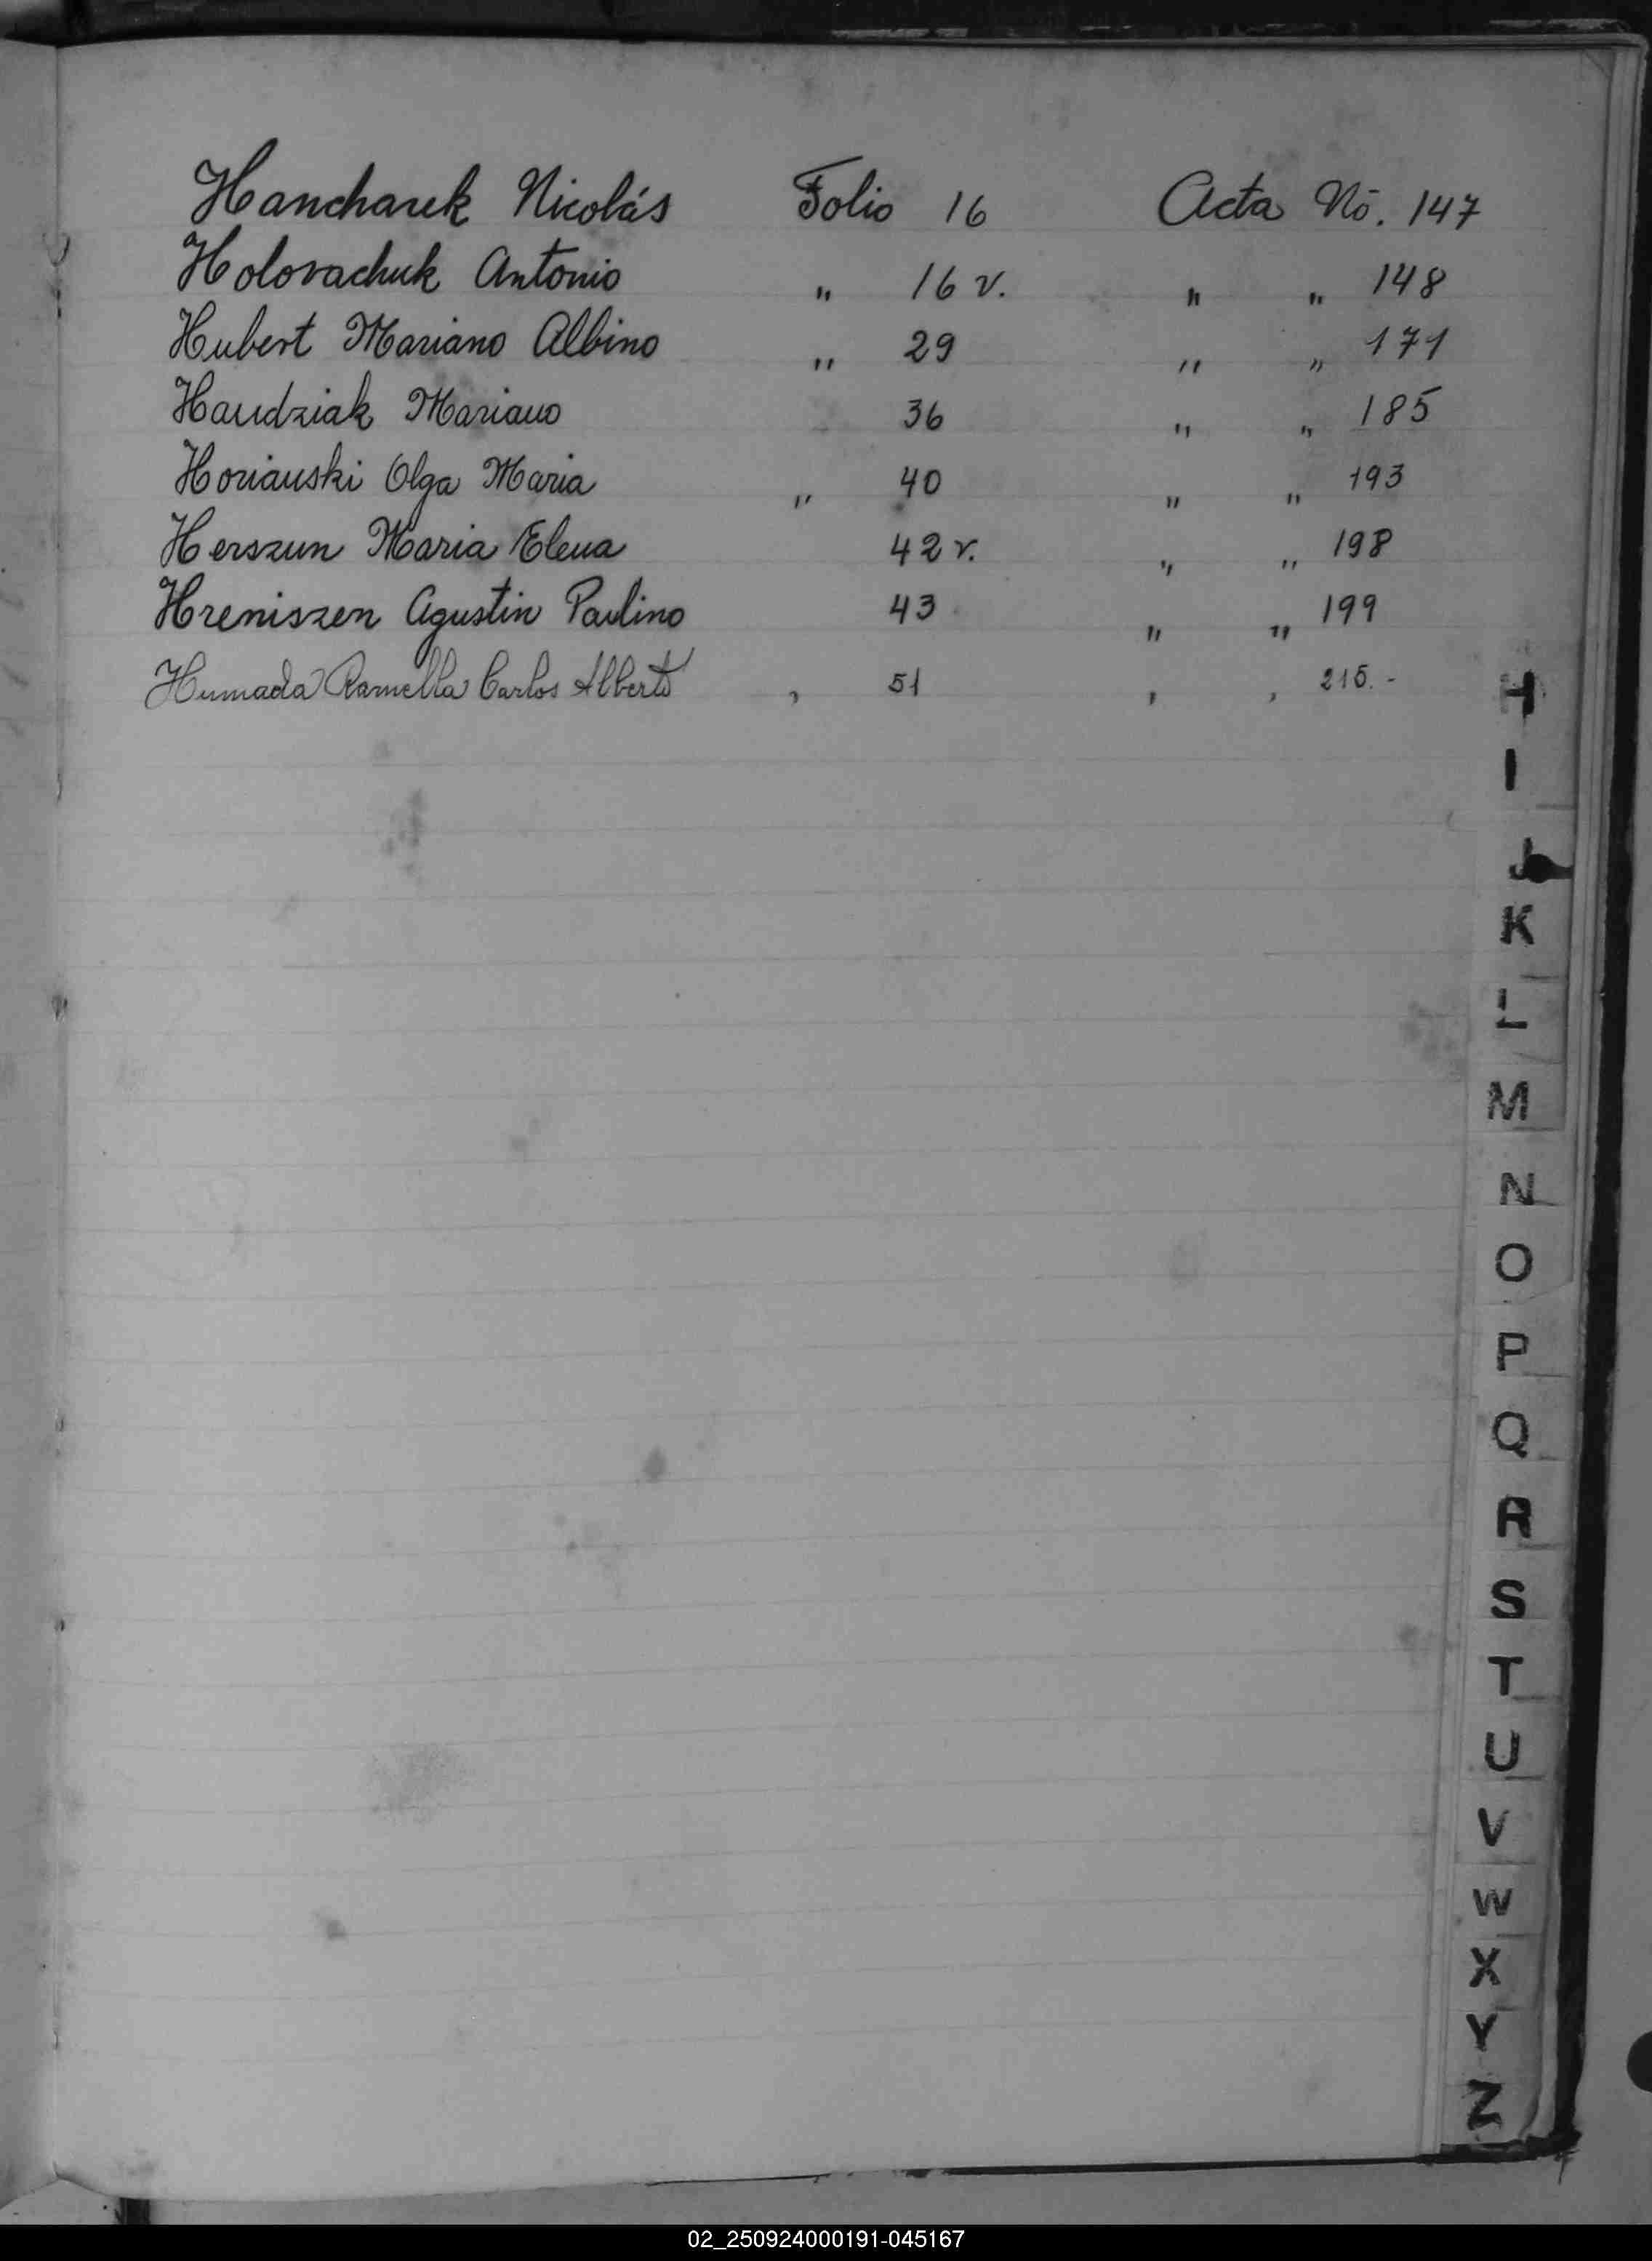 Hancharek Nicolás Folio 16 Acta Nō. 147
Holovachuk Antonio " 16 v. " " 148
Hubert Mariano Albino " 29 " " 171
Haudziak Mariano 36 " " 185
Horianski Olga Maria " 40 " " 193
Herszun Maria Elena 42 v. " " 198
Hreniszen Agustin Paulino 43 " " 199
Humada Ramella Carlos Alberto , 51 , , 215.-
H
I
J
K
L
M
N
O
P
Q
R
S
T
U
V
W
X
Y
Z
02_250924000191-045167